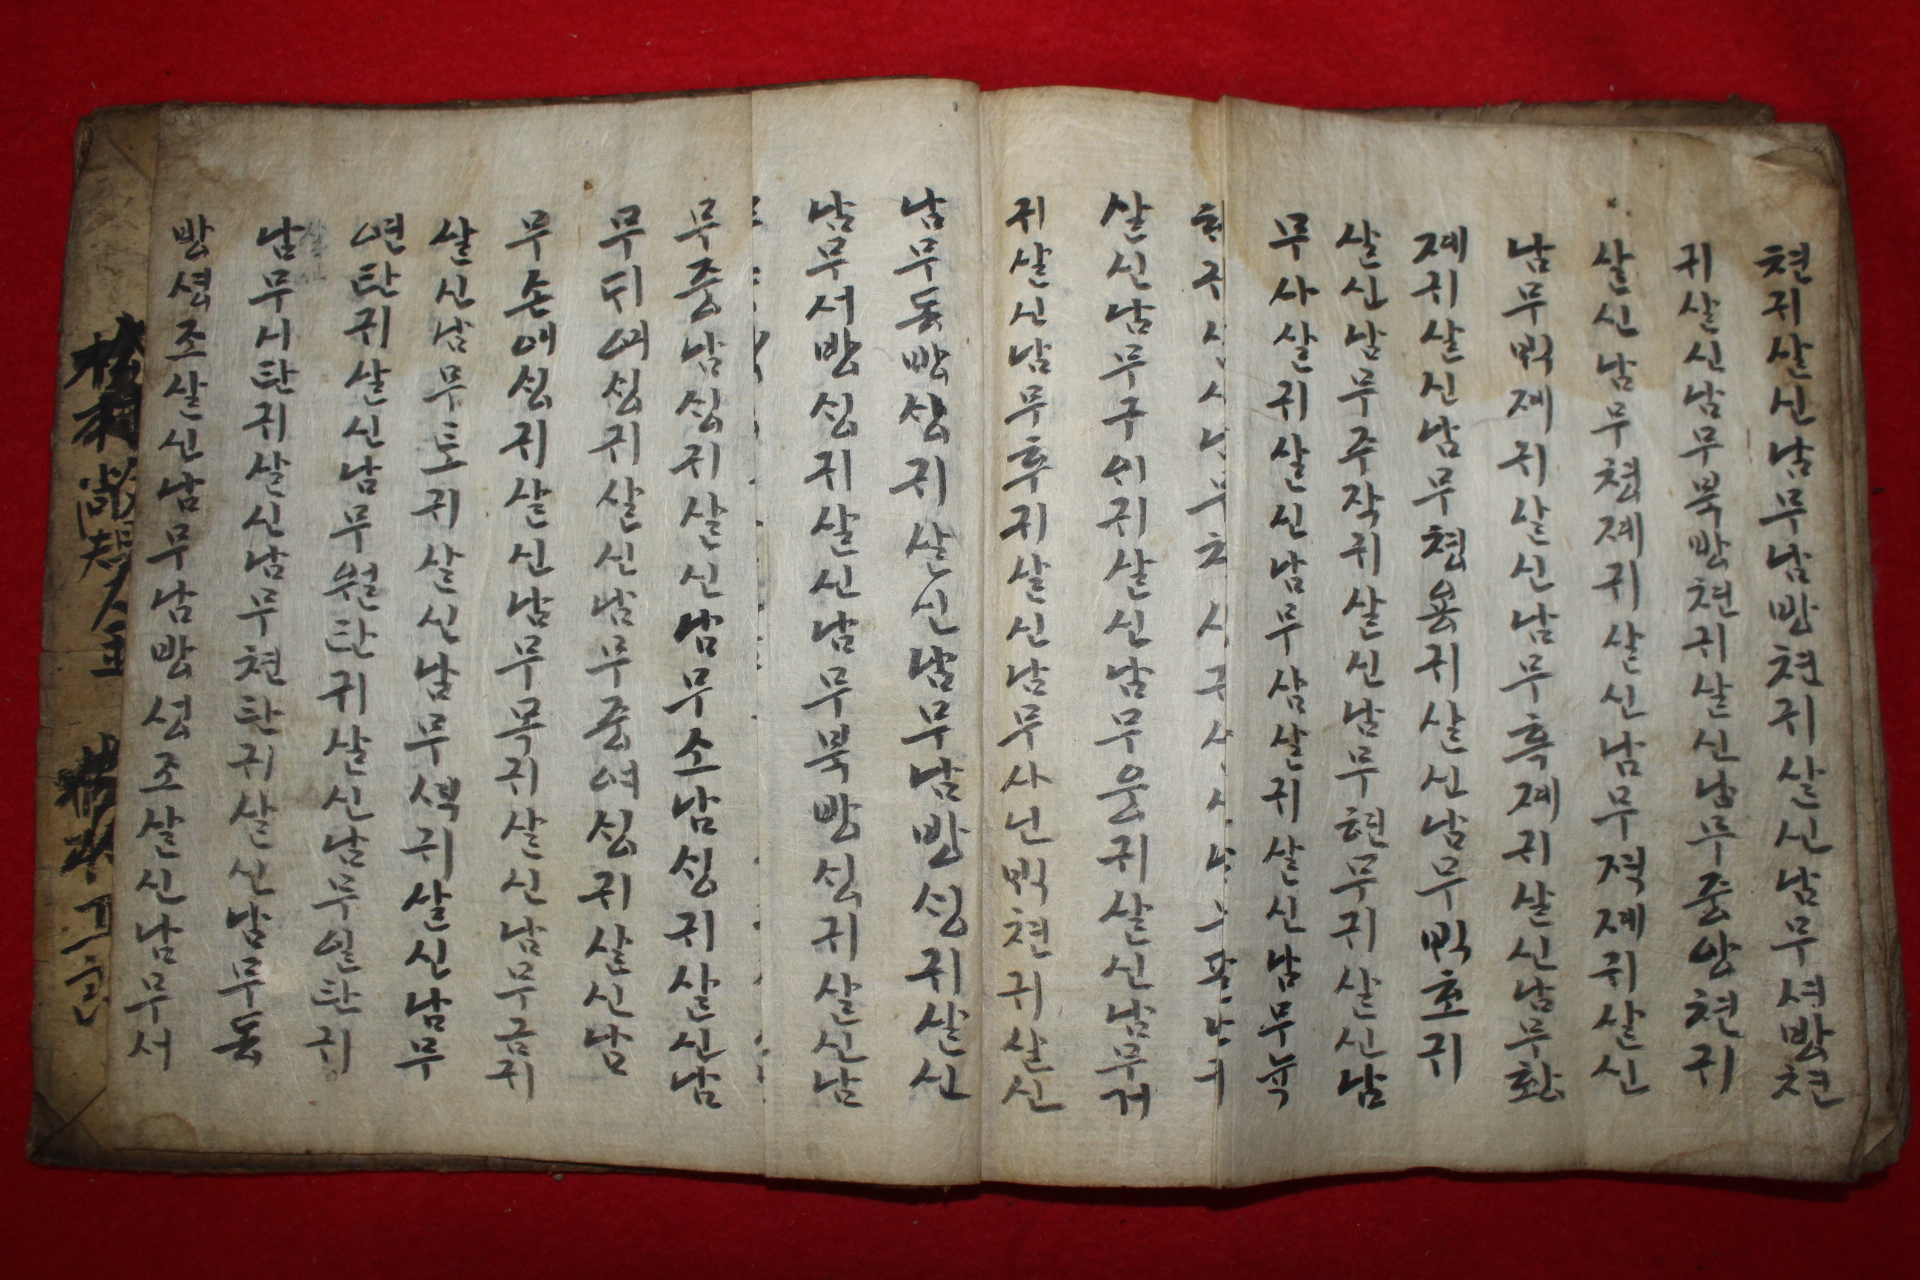 천귀살신남무남방천귀살신남무셔방천
귀살신남무북방천귀살신남무중앙천귀
살신남무청졔귀살신남무젹졔귀살신
남무빅졔귀살신남무흑졔귀살신남무황
졔귀살신남무청용귀살신남무빅호귀
살신남무주작귀살신남무현무귀살신남
무사살귀살신남무삼살귀살신남무육
살신남무구귀살신남무운귀살신남무거
귀살신남무후귀살신남무사닌빅천귀살신
남무동방싱귀살신남무남방싱귀살신
남무서방싱귀살신남무북방싱귀살신남
무중남싱귀살신남무소남싱귀살신남
무듸여싱귀살신남무중여싱귀살신남
무손여싱귀살신남무목귀살신남무금귀
살신남무토귀살신남무석귀살신남무
연탄귀살신남무월탄귀살신남무일탄귀
남무시탄귀살신남무천탄귀살신남무동
방셩조살신남무남방셩조살신남무서